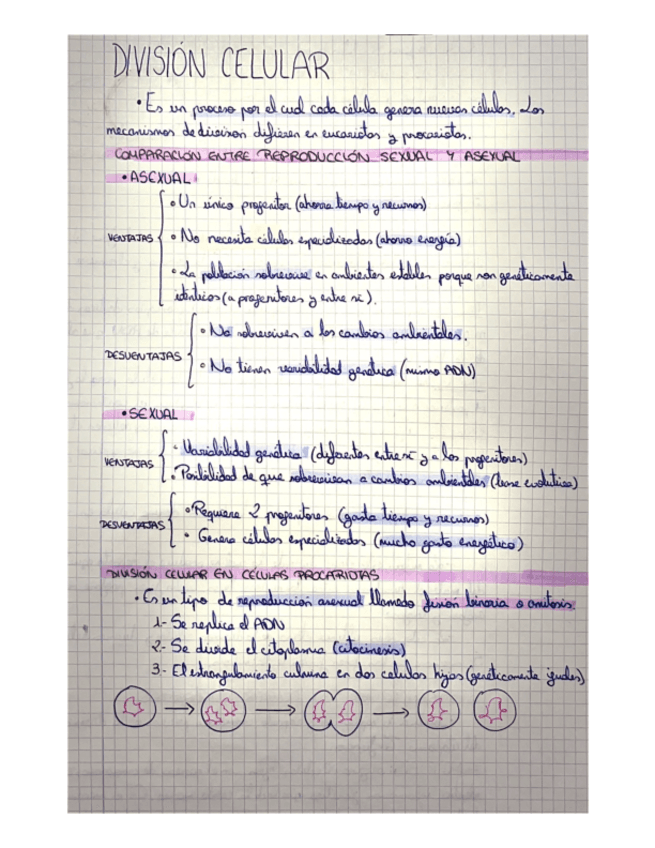 DIVISIÓN CELULAR
• Es un proceso por el cual cada célula genera nuevas células. Los
mecanismos de division difieren en eucariotas y procariotas.
COMPARACIÓN ENTRE REPRODUCCIÓN SEXUAL Y ASEXUAL
• ASEXUAL
VENTAJAS
• Un único progenitor (ahorra tiempo y recursos)
• No necesita células especializadas (ahorro energía)
• La población sobrevive en ambientes estables porque son genéticamente
idénticos (a progenitores y entre sí).
DESVENTAJAS
• No sobreviven a los cambios ambientales.
• No tienen variabilidad genética (mismo ADN)
• SEXUAL
VENTAJAS
• Variabilidad genética (diferentes entre sí y a los progenitores)
• Posibilidad de que sobrevivan a cambios ambientales (base evolutiva)
DESVENTAJAS
• Requiere 2 progenitores (gasta tiempo y recursos)
• Genera células especializadas (mucho gasto energético)
DIVISIÓN CELULAR EN CÉLULAS PROCARIOTAS
• Es un tipo de reproducción asexual llamado fisión binaria o amitosis.
1- Se replica el ADN
2- Se divide el citoplasma (citocinesis)
3- El estrangulamiento culmina en dos celulas hijas (genéticamente iguales)